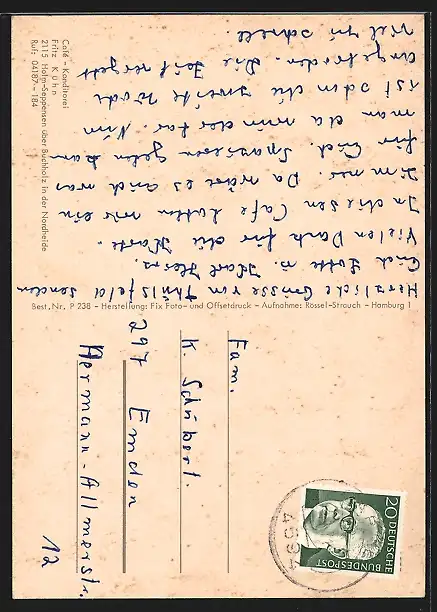 Café - Konditorei
Fritz Kühn
2115 Holm-Seppensen über Buchholz in der Nordheide
Ruf: 04187 - 184
Herzliche Grüsse von Thülsfeld senden
Euch Lotte u. Karl Heinz.
Vielen Dank für die Karte.
In diesen Cafe hatten wir ein
Zimmer. Da wäre es auch was
für Euch. Spazieren gehn kan
man da wunderbar. Nun
ist schon die zweite Woche
angebroden. Die Zeit vergeht
viel zu schnell.
Best. Nr. P 238 - Herstellung: Fix Foto- und Offsetdruck - Aufnahme: Rössel-Strauch - Hamburg 1
Fam.
K. Schubert.
297 Emden
Hermann-Allmerstr.
12
20 DEUTSCHE
BUNDESPOST